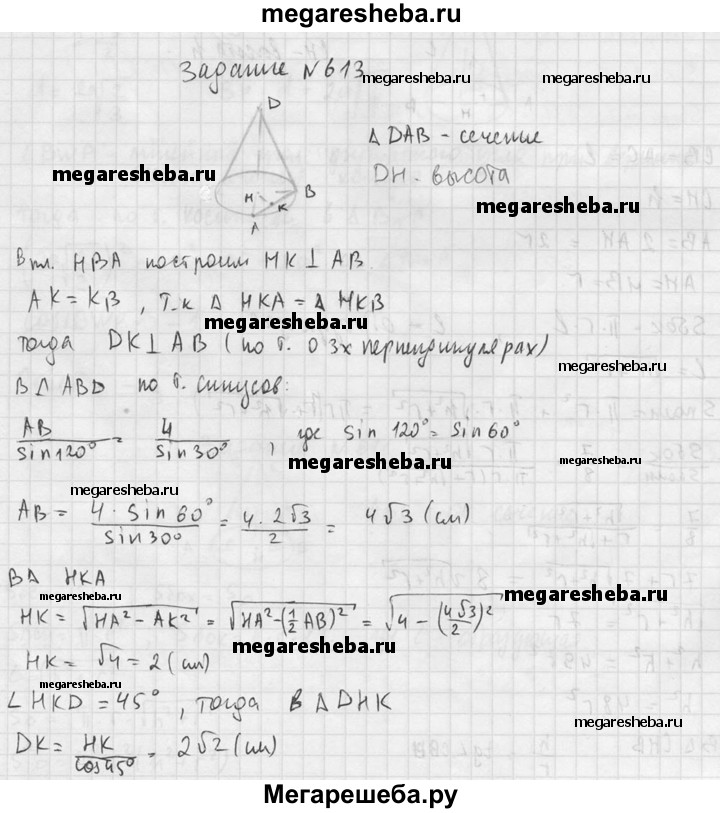 megaresheba.ru
Задание №613
megaresheba.ru megaresheba.ru
D
Δ DAB - сечение
megaresheba.ru
DH - высота
H B
K
megaresheba.ru
A
В пл. HBA построим HK ⊥ AB.
megaresheba.ru
AK = KB, т.к Δ HKA = Δ HKB
megaresheba.ru
тогда DK ⊥ AB (по т. о 3х перпендикулярах)
megaresheba.ru
В Δ ABD по т. синусов:
AB/sin120° = 4/sin30°, где sin 120° = sin 60°
megaresheba.ru megaresheba.ru
megaresheba.ru
AB = 4·sin 60°/sin 30° = 4·2√3/2 = 4√3 (см)
megaresheba.ru
В Δ HKA
megaresheba.ru megaresheba.ru
HK = √HA² - AK² = √HA² - (½ AB)² = √4 - (4√3/2)²
megaresheba.ru
HK = √4 = 2 (см)
megaresheba.ru
∠ HKD = 45°, тогда в Δ DHK
megaresheba.ru
DK = HK/cos45° = 2√2 (см)
megaresheba.ru
Мегарешеба.ру